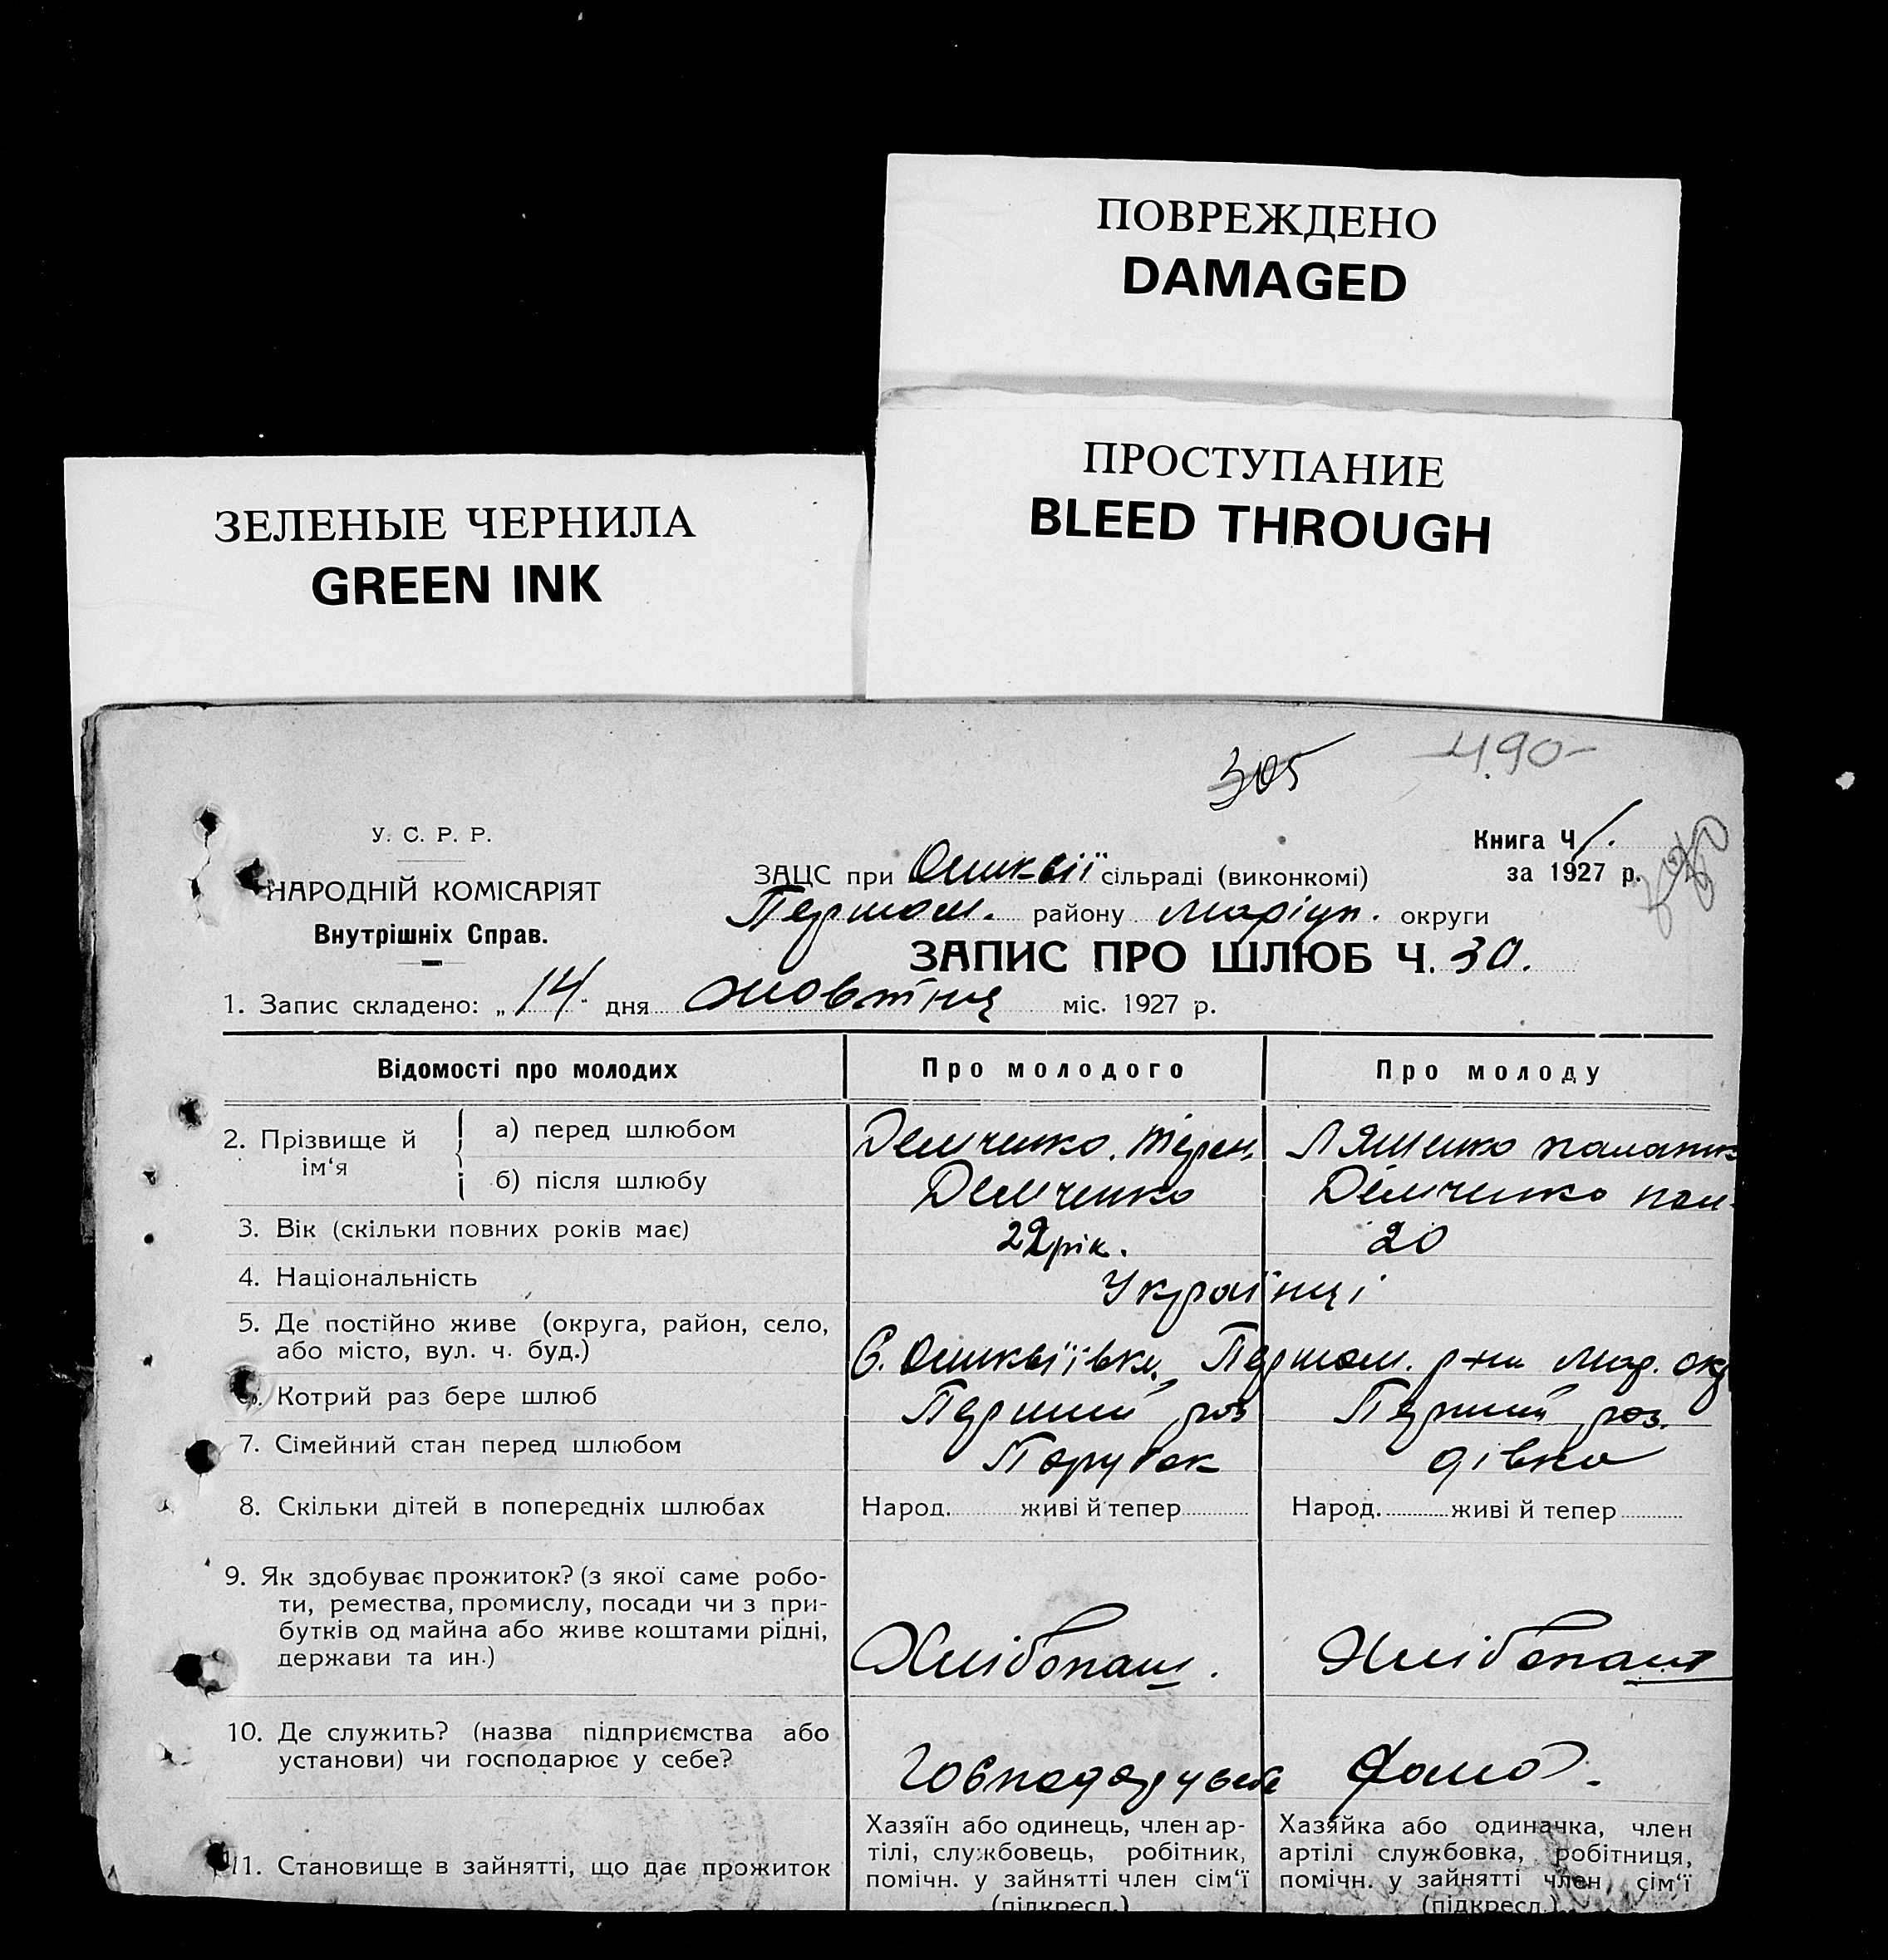 ПОВРЕЖДЕНО
DAMAGED
ПРОСТУПАНИЕ
BLEED THROUGH
ЗЕЛЕНЫЕ ЧЕРНИЛА
GREEN INK
305
490
У. С. Р. Р.
НАРОДНІЙ КОМІСАРІЯТ
Внутрішніх Справ.
Книга Ч 1.
за 1927 р.
ЗАЦС при сільраді (виконкомі)
Першом. району Маріуп. округи
ЗАПИС ПРО ШЛЮБ Ч. 30.
1. Запис складено: „14" дня жовтня міс. 1927 р.
Відомості про молодих
Про молодого
Про молоду
2. Прізвище й ім'я
а) перед шлюбом
Демченко. Терен.
Лященко
б) після шлюбу
Демченко
Демченко
3. Вік (скільки повних років має)
22 рік.
20
4. Національність
Українці
5. Де постійно живе (округа, район, село,
або місто, вул. ч. буд.)
С. Першом. р-ну Мар. окр
6. Котрий раз бере шлюб
Перший раз
Перший раз.
7. Сімейний стан перед шлюбом
Парубок
дівка
8. Скільки дітей в попередніх шлюбах
Народ. живі й тепер
Народ. живі й тепер
9. Як здобуває прожиток? (з якої саме робо-
ти, ремества, промислу, посади чи з при-
бутків од майна або живе коштами рідні,
держави та ин.)
Хлібопаш.
Хлібопаш
10. Де служить? (назва підприємства або
установи) чи господарює у себе?
Господар у себе
Дома.
11. Становище в зайнятті, що дає прожиток
Хазяїн або одинець, член ар-
тілі, службовець, робітник,
помічн. у зайнятті член сім'ї
(підкресл.)
Хазяйка або одиначка, член
артілі службовка, робітниця,
помічн. у зайнятті член сім'ї
(підкресл.)